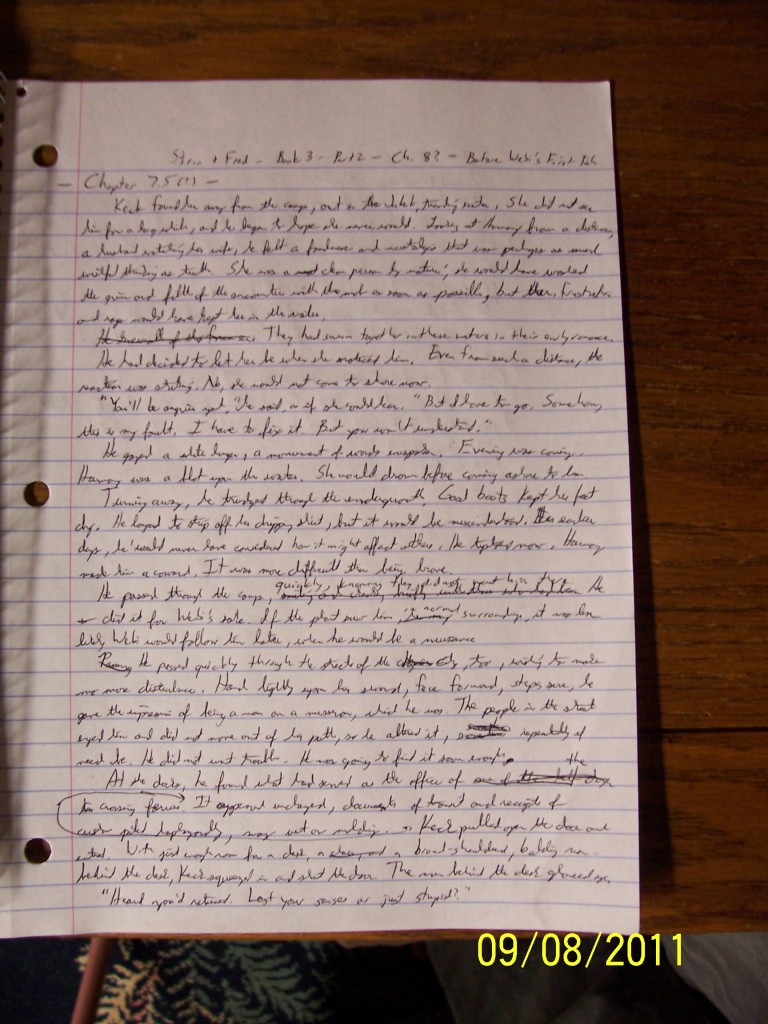 + Fred - Book 3 - Part 2 - Ch. 8? - Before Web's First
- Chapter 7.5 (?) -
Keck found her away from the camp, out in the water. She did not see
him for a long while, and he began to hope she never would. Looking at Harmony from a distance,
a husband watching his wife, he felt a fondness and nostalgia that was perhaps as much
wishful thinking as truth. She was a clean person by nature; she would have washed
the grime and filth of the encounter with the mob as soon as possible, but then frustration
and rage would have kept her in the water.
They had swum together in these waters in their early romance.
He had decided to let her be when she noticed him. Even from such a distance, the
reaction was striking. No, she would not come to shore now.
"You'll be angrier yet," he said, as if she could hear. "But I have to go. Somehow,
this is my fault. I have to fix it. But you won't understand."
He gazed a while longer, a monument of words unspoken. Evening was coming.
was a blot upon the water. She would drown before coming ashore to him.
Turning away, he trudged through the undergrowth. Good boots kept his feet
dry. He longed to strip off his dripping shirt, but it would be misunderstood. In earlier
days, he would never have considered how it might affect others. He now.
made him a coward. It was more difficult than being brave.
He passed through the camp, quickly, knowing they did not want him there. He
did it for Web's sake. If the saw him in normal surroundings, it was less
likely Web would follow him later, when he would be a nuisance
He passed quickly through the streets of the city, too, wishing to make
no more disturbance. Hand lightly upon his sword, face forward, steps sure, he
gave the impression of being a man on a mission, which he was. The people in the street
eyed him and did not move out of his path, so he allowed it, repeatedly if
need be. He did not want trouble. He was going to find it soon enough.
At the docks, he found what had served as the office of the
crossing It appeared unchanged, documents of travel and receipts of
piled haphazardly, Keck pulled open the door and
entered. With just enough room for a desk, a broad-shouldered, balding man
behind the desk, Keck squeezed in and shut the door. The man behind the desk glanced up.
"Heard you'd returned. Lost your senses or just stupid?"
09/08/2011